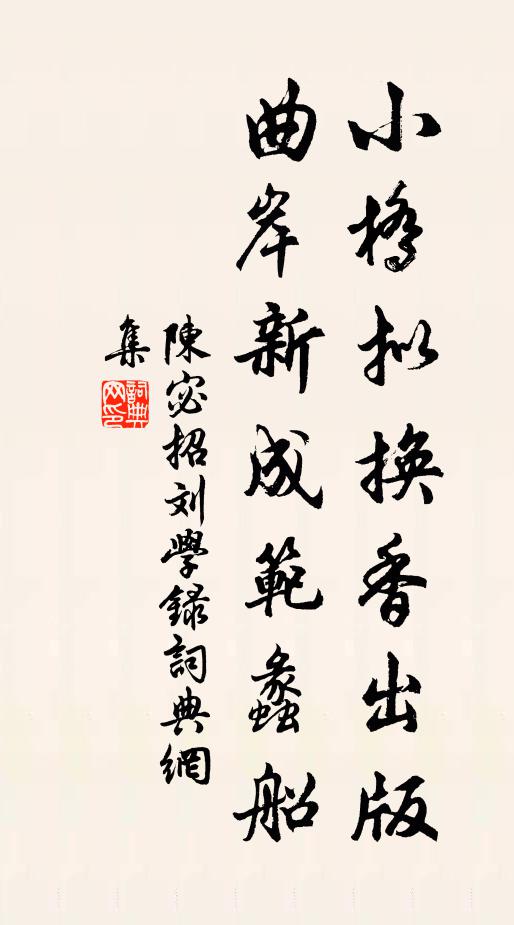 小橋拟換香出版
曲岸新成範蠡船
陳宓招刘學録詞典網
集
詞典网印